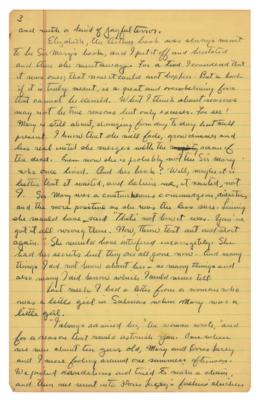 3
and with a kind of joyful terror.
Elizabeth, the book was always meant
to be Sir Mary's book, and I put it off and hesitated
and then she went away. For a time I considered that
it was over; that now it could not happen. But a book
if it is truly meant, is a great and overwhelming force
that cannot be denied. What I think about reasons
may not be true reasons but only excuses. For see!
Mary is still about, changing from day to day but still
present. I know that she will fade, grow dimmer and
less real until she merges with the ocean of
the dead. Even now she is probably not the Sir Mary
who once lived. And her book? Well, maybe it is
better that it waited, and believe me, it waited, not
I. Sir Mary was a contentious, a
and the more positive as she was the less sure, having
she would have said "that's not how it was. You've
got it all wrong there. Now, then, tear out and start
again." She would have interfered incorrigibly. She
had her secrets but they are all gone now. And many
things I did not know about her - so many things and
also many I did know which I would never tell.
Last week I had a letter from a woman who
was a little girl in Salinas when Mary was a
little girl.
"I always admired her," the woman wrote, "and
for a reason that would astonish you. Once when
we were about ten years old, Mary and
and I were fooling around one summer afternoon.
We and tried to
and then we went into